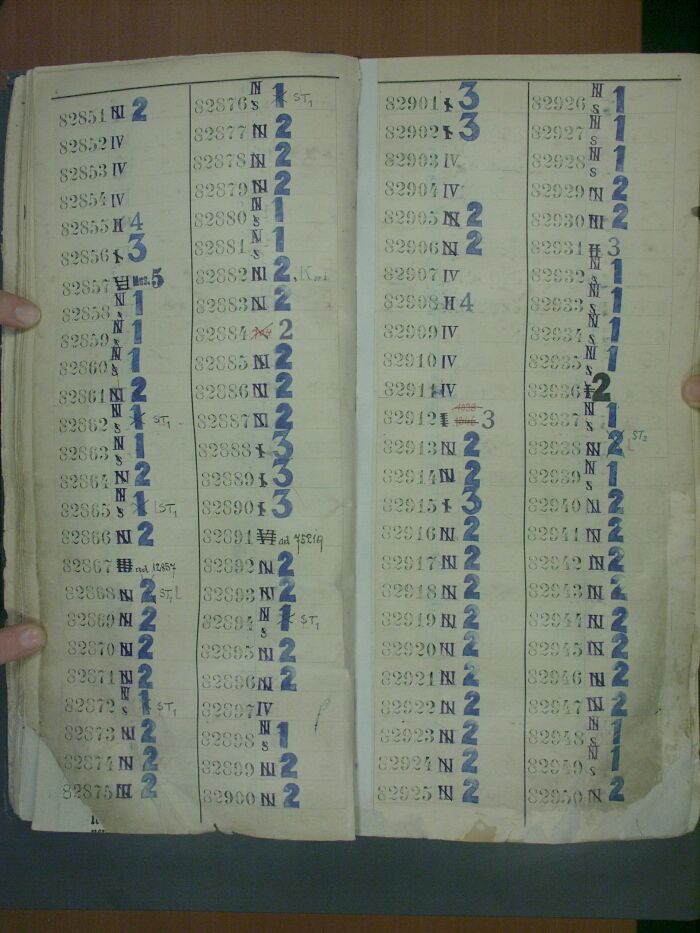 82851 IVI 2
82852 IV
82853 IV
82854 IV
82855 II 4
82856 I 3
82857 Mus. 5
82858 N S 1
82859 N S 1
82860 N S 1
82861 N 2
82862 N S 1 ST1
82863 N S 1
82864 N 2
82865 N S 1 ST1
82866 N 2
82867 ad 12857
82868 N 2 ST1
82869 N 2
82870 N 2
82871 N 2
82872 N S 1 ST1
82873 N 2
82874 N 2
82875 N 2
82876 N S 1 ST1
82877 N 2
82878 N 2
82879 N 2
82880 N S 1
82881 N S 1
82882 N 2
82883 N 2
82884 2
82885 N 2
82886 N 2
82887 N 2
82888 I 3
82889 I 3
82890 I 3
82891 VI ad 75219
82892 N 2
82893 N 2
82894 N S 1 ST1
82895 N 2
82896 N 2
82897 IV
82898 N S 1
82899 N 2
82900 N 2
82901 I 3
82902 I 3
82903 IV
82904 IV
82905 N 2
82906 N 2
82907 IV
82908 II 4
82909 IV
82910 IV
82911 IV
82912 I 3
82913 N 2
82914 N 2
82915 I 3
82916 N 2
82917 N 2
82918 N 2
82919 N 2
82920 N 2
82921 N 2
82922 N 2
82923 N 2
82924 N 2
82925 N 2
82926 N S 1
82927 N S 1
82928 N S 1
82929 N 2
82930 N 2
82931 II 3
82932 N S 1
82933 N S 1
82934 N S 1
82935 N S 1
82936 I 2
82937 N S 1
82938 N 2 ST2
82939 N S 1
82940 N 2
82941 N 2
82942 N 2
82943 N 2
82944 N 2
82945 N 2
82946 N 2
82947 N 2
82948 N S 1
82949 N S 1
82950 N 2